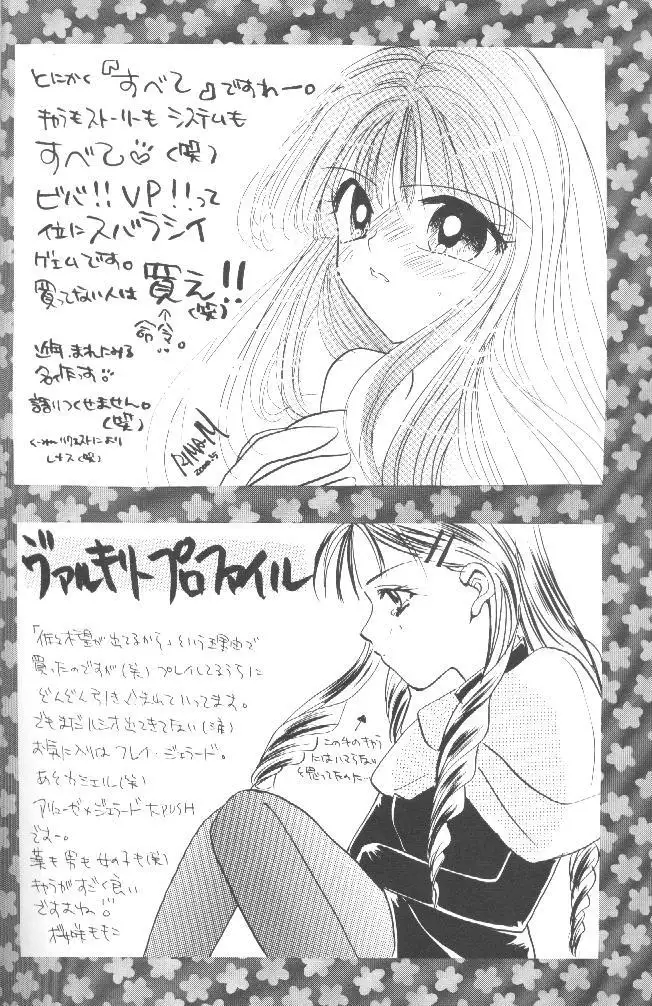 とにかく『すべて』ですわー。
キャラもストーリーも システムも
すべて♡(笑)
ビバ!!VP!!って
位にスバラシイ
ゲェムです。
買ってない人は 買え!!
(笑)
↑
命令
近年まれにみる
名作っす
語りつくせません。
(笑)
RINA・M
2000.5
ヴァルキリープロファイル
「佐々木望が出てるから」という理由で
買ったのですが(笑)プレイしてるうちに
ぞんぞん引き込まれていってます。
でもまだルシオ出てきてない(涙)
お気に入りはフレイ・ジェラード。
あとカシェル(笑)
アリューゼ×ジェラード大PUSH
ですー。
葉も男も女の子も(笑)
キャラがすごく良い
ですよね
桜咲ももこ
この手のキャラ
にはいてらない
と思ってたのに…